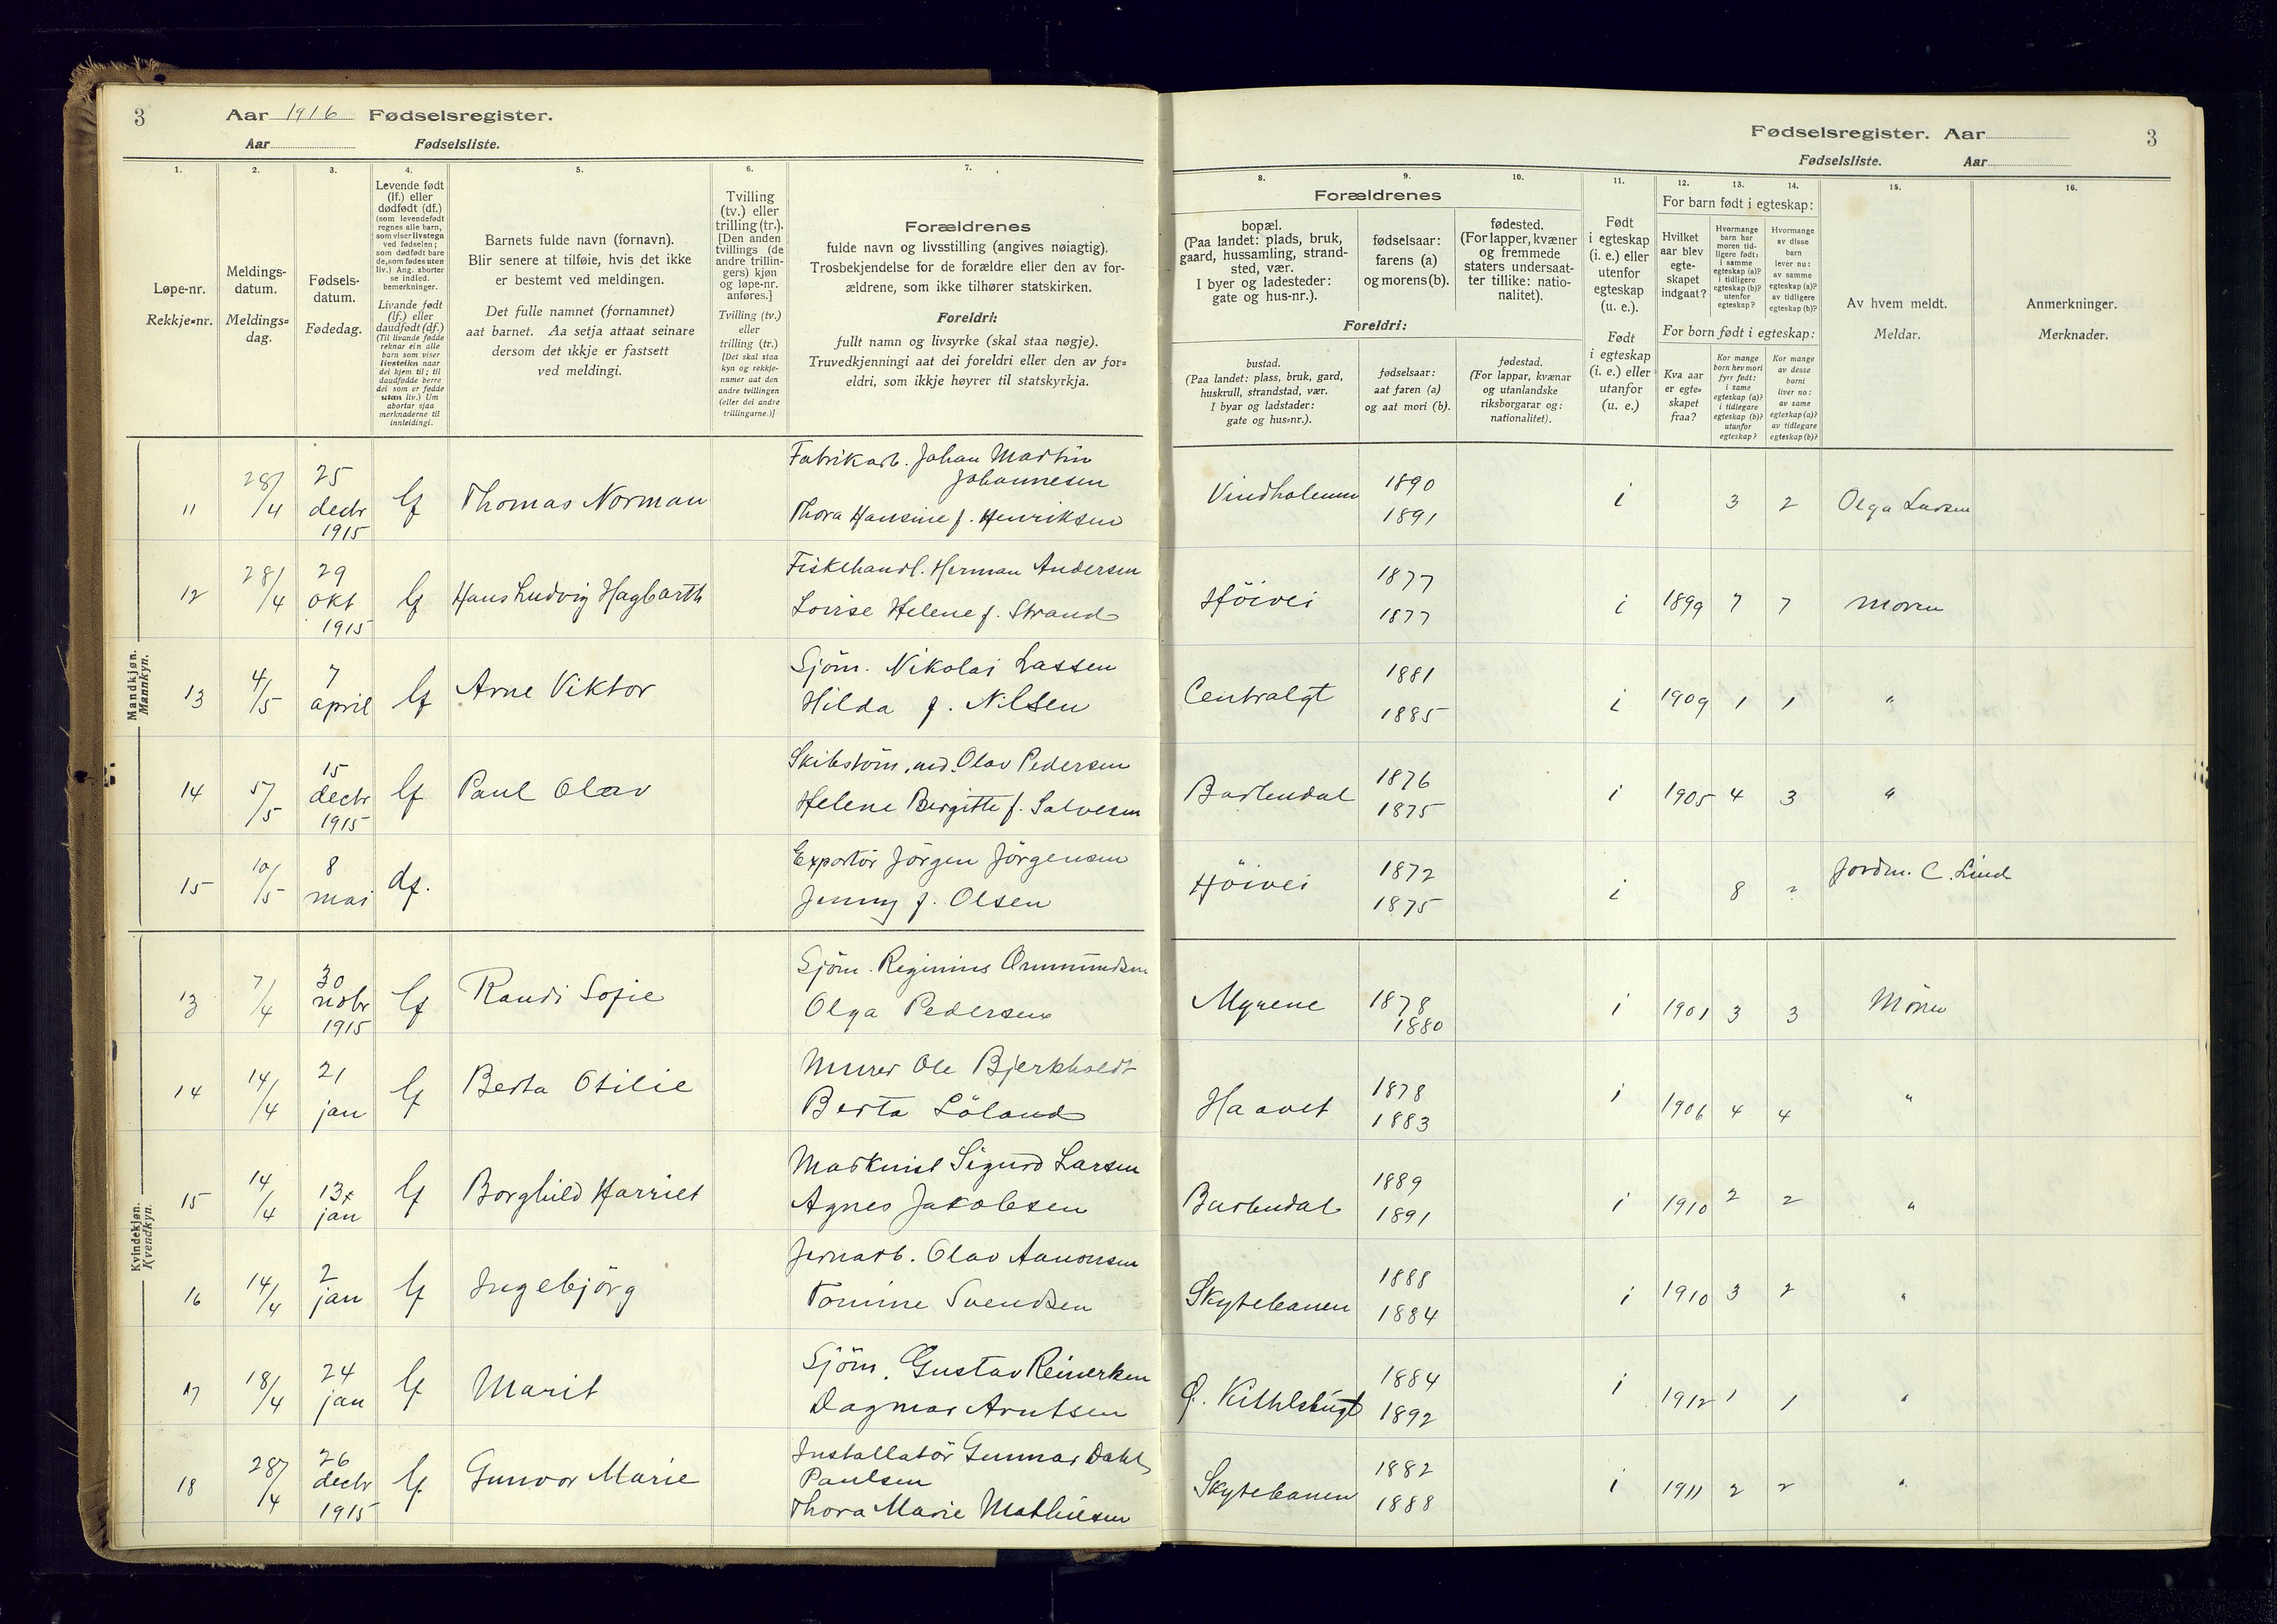 3
Aar 1916 Fødselsregister.
Aar Fødselsliste.
1.
2.
3.
4.
5.
6.
7.
Løpe-nr.
Rekkje-nr.
Meldings-
datum.
Meldings-
dag.
Fødsels-
datum.
Fødedag.
Levende født
(lf.) eller
dødfødt (df.)
(som levendefødt
regnes alle barn,
som viser livstegn
ved fødselen;
som dødfødt bare
de, som fødes uten
liv.) Ang. aborter
se indled.
bemerkninger.
Livande født
(lf.) eller
daudfødt (df.)
(Til livande fødde
reknar ein alle
barn som viser
livsteikn naar
dei kjem til; til
daudfødde berre
dei som er fødde
utan liv.) Um
abortar sjaa
merknaderne til
innleidingi.
Barnets fulde navn (fornavn).
Blir senere at tilføie, hvis det ikke
er bestemt ved meldingen.
Det fulle namnet (fornamnet)
aat barnet. Aa setja attaat seinare
dersom det ikkje er fastsett
ved meldingi.
Tvilling
(tv.) eller
trilling (tr.).
[Den anden
tvillings (de
andre trillin-
gers) kjøn
og løpe-nr.
anføres.]
Tvilling (tv.)
eller
trilling (tr.)
[Det skal staa
kyn og rekkje-
numer aat den
andre tvillingen
(eller dei andre
trillingarne.)]
Forældrenes
fulde navn og livsstilling (angives nøiagtig).
Trosbekjendelse for de forældre eller den av for-
ældrene, som ikke tilhører statskirken.
Foreldri:
fullt namn og livsyrke (skal staa nøgje).
Truvedkjenningi aat dei foreldri eller den av for-
eldri, som ikkje høyrer til statskyrkja.
Mandkjøn.
Mannkyn.
11 28/4 25 dectr 1915 lf Thomas Norman Fabrikarb. Johan Martin
Johannesen
Thora Hansine f. Henriksen
12 28/4 29 okt 1915 lf Hans Ludvig Hagbarth Fiskehandl. Herman Andersen
Lovise Helene f. Strand
13 4/5 7 april lf Arne Viktor Sjöm. Nikolai Lassen
Hilda f. Nilsen
14 5/5 15 dectr 1915 lf Paul Olav Skibstöm. Olav Pedersen
Helene Birgitte f. Salvesen
15 10/5 8 mai df. Exportör Jörgen Jörgensen
Jenny f. Olsen
Kvindekjøn.
Kvendkyn.
13 7/4 30 nobr 1915 lf Randi Sofie Sjöm. Reginius Ommundsen
Olga Pedersen
14 14/4 21 jan lf Berta Otilie Murer Ole Bjerkholdt
Berta Löland
15 14/4 13 jan lf Borghild Harriet Maskinist Sigurd Larsen
Agnes Jakobsen
16 14/4 2 jan lf Ingebjörg Jernarb. Olav Aanonsen
Tomine Svendsen
17 18/4 24 jan lf Marit Sjöm. Gustav Reinertsen
Dagmar Arntsen
18 28/4 26 dectr 1915 lf Gunvor Marie Installatör Gunnar Dahl
Paulsen
Thora Marie Mathiesen
Fødselsregister. Aar
Fødselsliste. Aar
3
8.
9.
10.
11.
12.
13.
14.
15.
16.
Forældrenes
bopæl.
(Paa landet: plads, bruk,
gaard, hussamling, strand-
sted, vær.
I byer og ladesteder:
gate og hus-nr.).
fødselsaar:
farens (a)
og morens (b).
fødested.
(For lapper, kvæner
og fremmede
staters undersaat-
ter tillike: natio-
nalitet).
Foreldri:
bustad.
(Paa landet: plass, bruk, gard,
huskrull, strandstad, vær.
I byar og ladstader:
gate og hus-nr.).
fødselsaar:
aat faren (a)
og aat mori (b).
fødestad.
(For lappar, kvænar
og utanlandske
riksborgarar og:
nationalitet).
Født
i egteskap
(i. e.) eller
utenfor
egteskap
(u. e.).
Født
i egteskap
(i. e.) eller
utanfor
(u. e.)
For barn født i egteskap:
Hvilket
aar blev
egte-
skapet
indgaat?
Hvormange
barn har
moren tid-
ligere født:
i samme
egteskap (a)?
i tidligere
egteskap (b)?
utenfor
egteskap?
Hvormange
av disse
barn
lever nu:
av samme
egteskap (a)?
av tidligere
egteskap (b)?
For born født i egteskap:
Kva aar
er egte-
skapet
fraa?
Kor mange
born hev mori
fyrr født:
i same
egteskap (a)?
i tidlegare
egteskap (b)?
utanfor
egteskap?
Kor mange
av desse
borni
liver no:
av same
egteskap (a)?
av tidlegare
egteskap (b)?
Av hvem meldt.
Meldar.
Anmerkninger.
Merknader.
Vindholmen 1890 1891 i 3 2 Olga Larsen
Höivei 1877 1877 i 1899 7 7 Moren
Centralgt 1881 1885 i 1909 1 1 "
Barbudal 1876 1875 i 1905 4 3 "
Höivei 1872 1875 i 8 ? Jordm. C. Lind
Myrene 1878 1880 i 1901 3 3 Moren
Haavet 1878 1883 i 1906 4 4 "
Barbudal 1889 1891 i 1910 2 2 "
Skytebanen 1888 1884 i 1910 3 2 "
1884 1892 i 1912 1 1 "
Skytebanen 1882 1888 i 1911 2 2 "